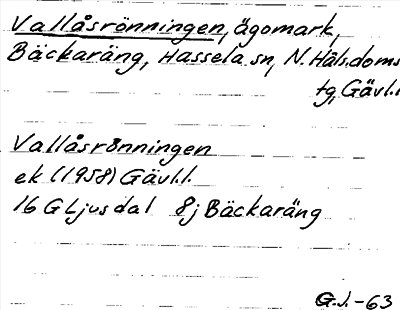 Vallåsrönningen, ägomark,
Bäckaräng, Hassela sn, N. Häls. doms
tg, Gävl. l
Vallåsrönningen
ek (1958) Gävl. l.
16 G Ljusdal 8j Bäckaräng
G.J. -63